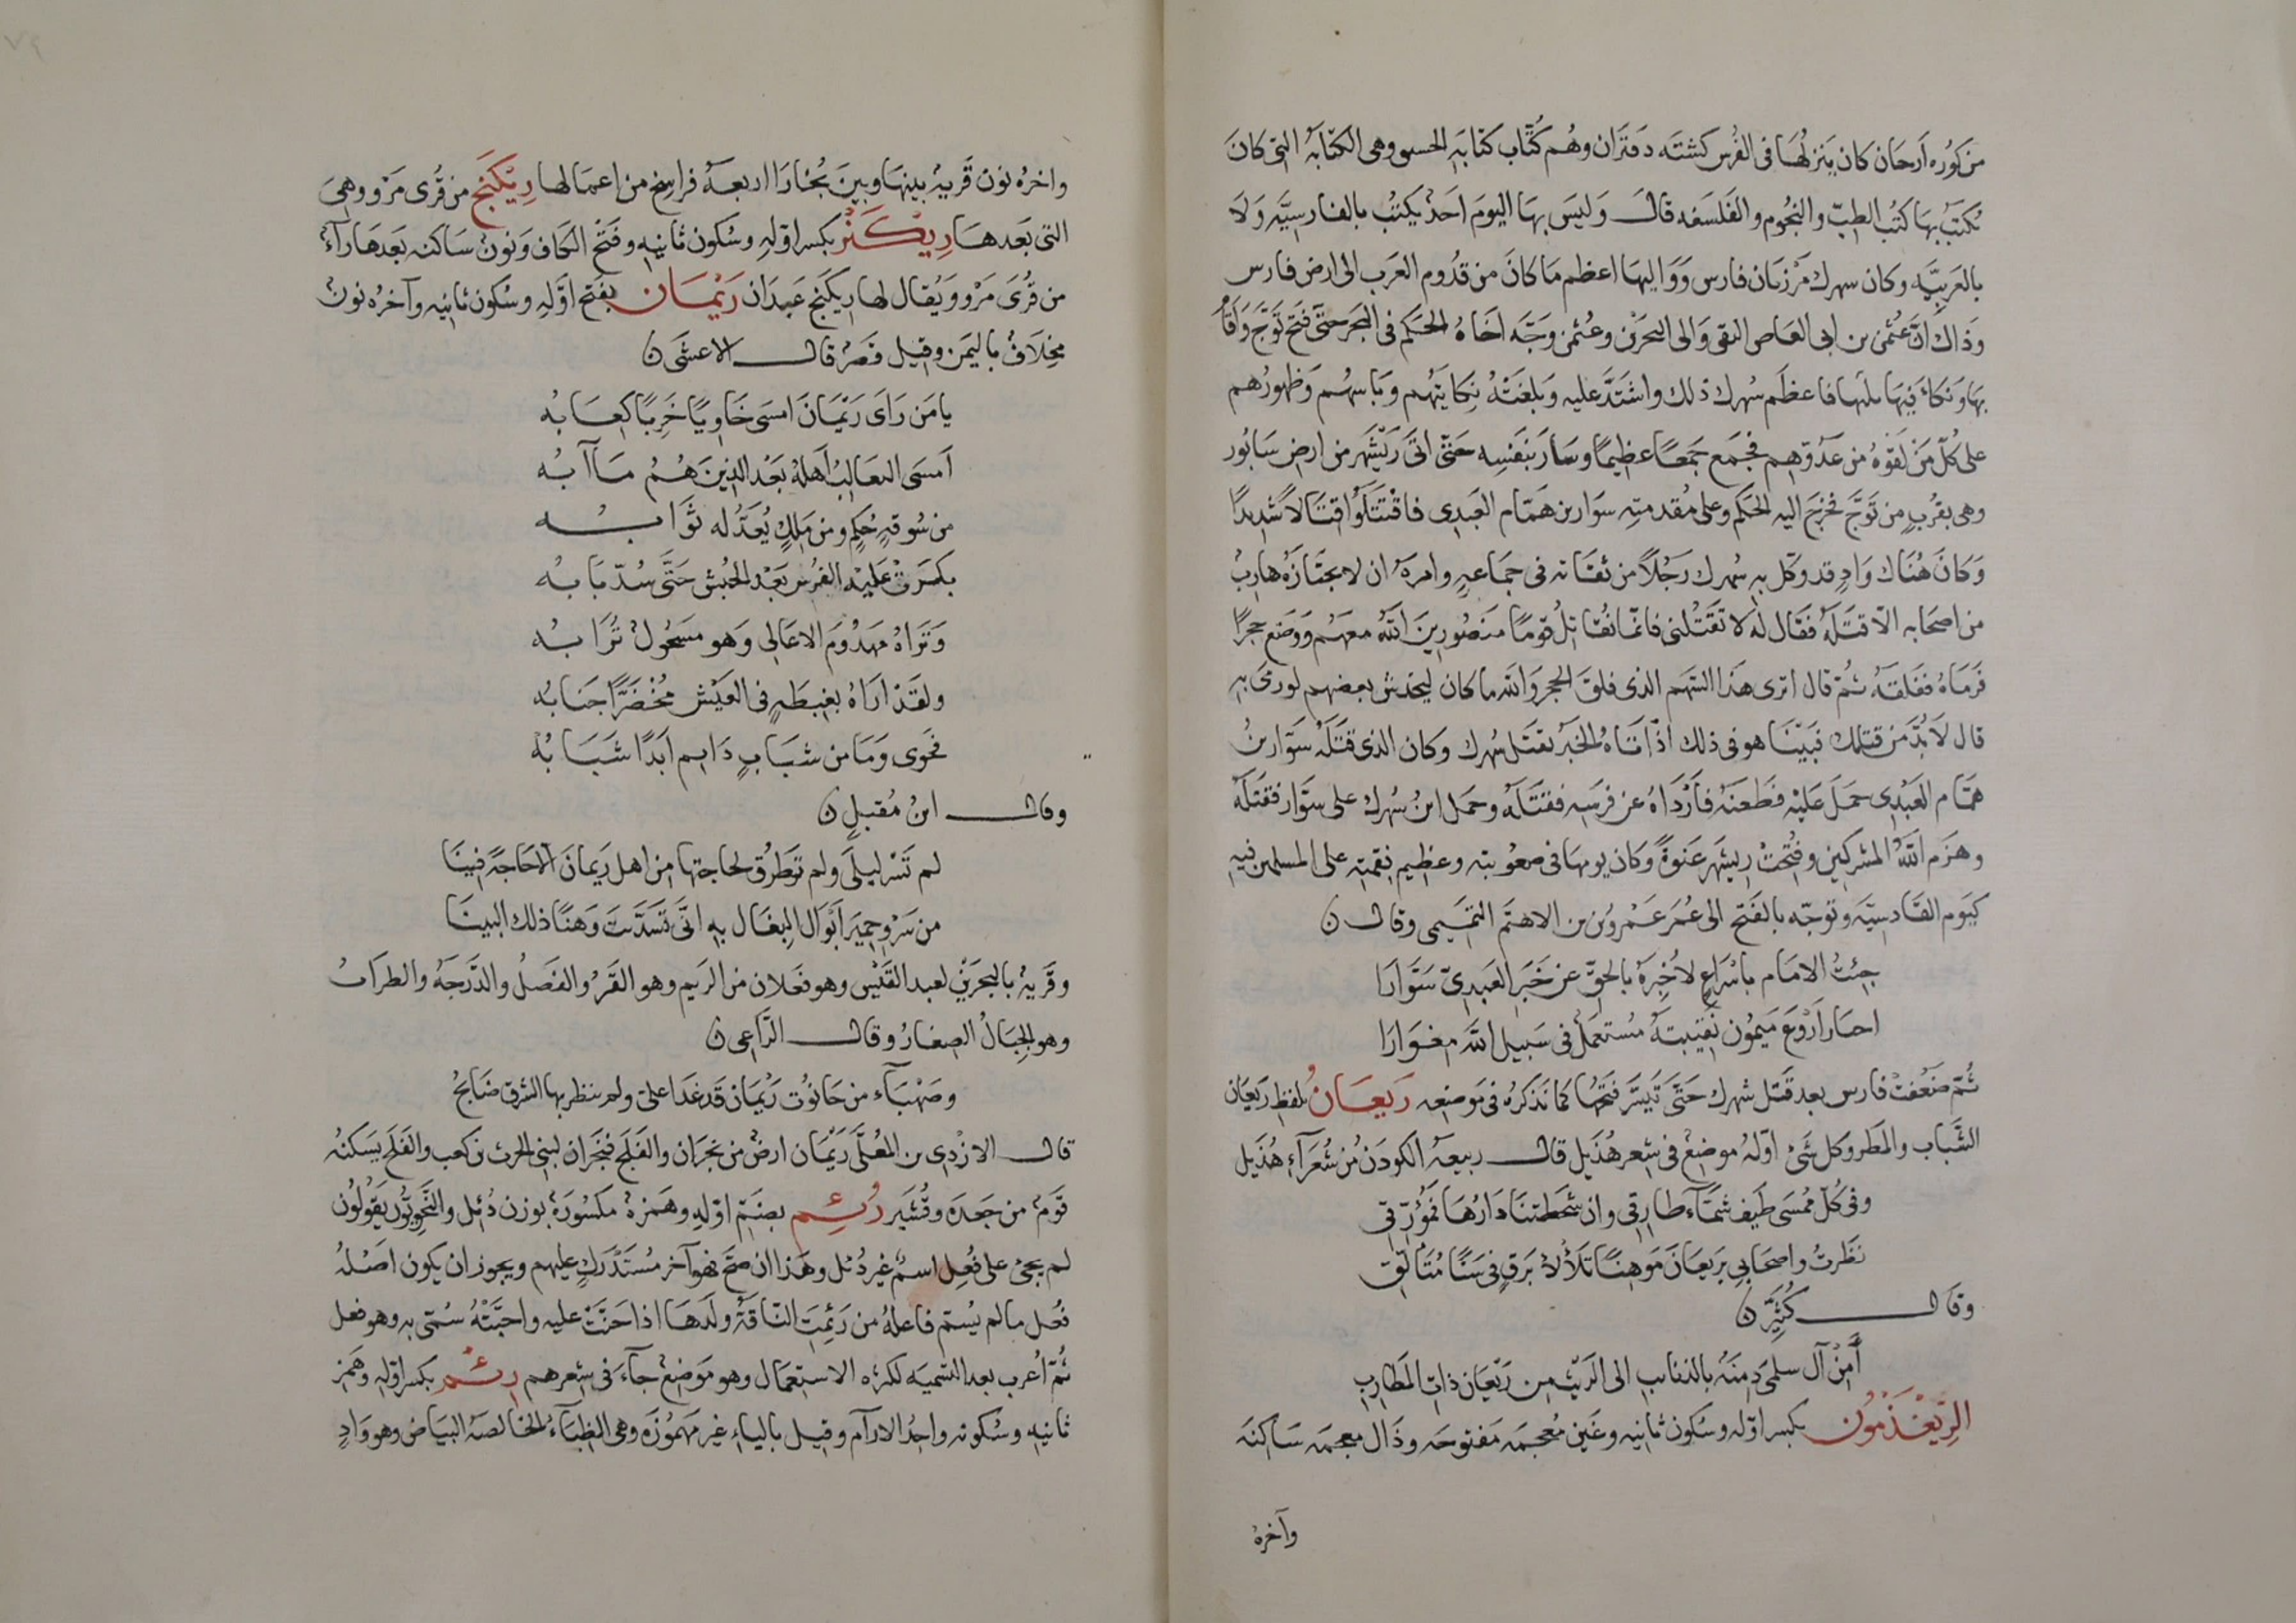 من كوره ارجان كان ينزلها فى الفرس كشته دفتران وهم كتاب كتابة الجستق وهى الكتابة التى كان
تكتب بها كتب الطب والنجوم والفلسفه قال وليس بها اليوم احد يكتب بالفارسيه ولا
بالعربيه وكان سهرك مرزبان فارس وواليها اعظم ما كان من قدوم العرب الى ارض فارس
وذاك ان عثمن بن ابى العاص الثقفى والى البحرين وعمن وجه اخاه الحكم فى البحر حتى فتح توج واقام
بها ونكا فيما يليها فاعظم سهرك ذلك واشتد عليه وبلغته نكايتهم وباسهم وظهورهم
على كل من لقوه من عدوهم فجمع جمعا عظيما وسار بنفسه حتى اتى ريشهر من ارض سابور
وهى بقرب من توج فخرج اليه الحكم وعلى مقدمته سوار بن همام العبدى فاقتتلوا قتالا شديدا
وكان هناك واد قد وكل به سهرك رجلا من ثقاته فى جماعه وامره ان لا يجتازه هارب
من اصحابه الا قتله فقال له لا تقتلنى فانما نقاتل قوما منصورين الله معهم ووضع حجرا
فرماه ففلقه ثم قال اترى هذا السهم الذى فلق الحجر والله ما كان ليخدش بعضهم لو رمى به
قال لا بد من قتلك فبينا هو فى ذلك اذ اتاه الخبر بقتل سهرك وكان الذى قتله سوار بن
همام العبدى حمل عليه فطعنه فأرداه عن فرسه فقتله وحمل ابن سهرك على سوار فقتله
وهزم الله المشركين وفتحت ريشهر عنوة وكان يومها فى صعوبته وعظيم نعمته على المسلمين فيه
كيوم القادسيه وتوجه بالفتح الى عمر عمرو بن الاهتم التميمى وقال ن
جئت الامام باسراع لاخبره بالحق عن خبر العبدى سوارا
اخبار اروع ميمون نقيبته مستعمل فى سبيل الله مغوارا
ثم ضعفت فارس بعد قتل شهرك حتى تيسر فتحها كما نذكره فى موضعه ريعان بلفظ ريعان
الشباب والمطر وكل شئ اوله موضع فى شعر هذيل قال ربيعة الكودن من شعرآء هذيل
وفى كل ممسى طيف شمآء طارقى وان شحطتنا دارها فمؤرقى
نظرت واصحابى بريعان موهنا تلألأ برق فى سنا متألق
وقال كثير ن
أمن آل سلمى دمنة بالذنائب الى الريث من ريعان ذات المطارب
الريغذمون بكسر اوله وسكون ثانيه وغين معجمه مفتوحه وذال معجمه ساكنه
وآخره
واخره نون قرية بينها وبين بخارا اربعة فراسخ من اعمالها ريكنج من قرى مرو وهى
التى بعدها ريكنز بكسر اوله وسكون ثانيه وفتح الكاف ونون ساكنه بعدها رآء
من قرى مرو ويقال لها ريكنج عبدان ريمان بفتح اوله وسكون ثانيه وآخره نون
مخلاف باليمن وقيل قصر قال الاعشى ن
يا من راى ريمان امسى خاويا خربا كعابه
أمسى الثعالب أهله بعد الذين هم مآبه
من سوقة حكم ومن ملك يعد له ثوابه
بكرت عليه الفرس بعد الحبش حتى سد بابه
وتراه مهدوم الاعالى وهو مسحول ترابه
ولقد اراه بغبطة فى العيش مخضرا جنابه
فخوى وما من شباب دايم ابدا شبابه
وقال ابن مقبل ن
لم تسر ليلى ولم تطرق لحاجتها من اهل ريمان الا حاجة فينا
من سرو حمير ابوال البغال به انى تسديت وهنا ذلك البينا
وقرية بالبحرين لعبد القيس وهو فعلان من الريم وهو القبر والفضل والدرجة والطراب
وهو الجبال الصغار وقال الراعى ن
وصهبآء من حانوت ريمان قد غدا على ولم ينظر بها الشرق ضابح
قال الازدى بن المعلى ريمان ارض من نجران والفلج فنجران لبنى الحرث بن كعب والفلج يسكنه
قوم من جعده وقشير رئم بضم اوله وهمزة مكسورة بوزن دئل والنحويون يقولون
لم يجئ على فعل اسم غير دئل وهذا ان صح فهو آخر مستدرك عليهم ويجوز ان يكون اصله
فعل ما لم يسم فاعله من رئمت الناقة ولدها اذا حنت عليه واحبته سمى به وهو فعل
ثم اعرب بعد التسميه لكثره الاستعمال وهو موضع جآء فى شعرهم رئم بكسر اوله وهمز
ثانيه وسكونه واحد الارآم وقيل باليآء غير مهموزه وهى الظبآء الخالصة البياض وهو واد